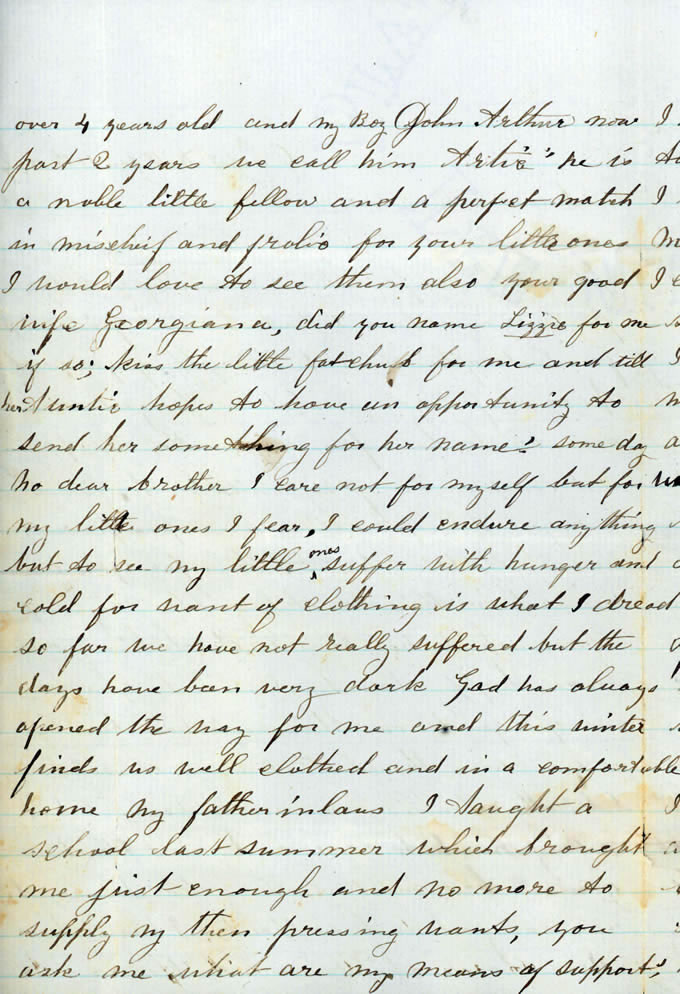 over 4 years old and my Boy John Arthur now I
past 2 years we call him "Artie" he is
a noble little fellow and a perfect match I
in mischeif and frolic for your little ones
I would love to see them also your good I
wife Georgiana, did you name Lizzie for me
if so; kiss the little fat chub for me and till
her Auntie hopes to have an opportunity to
send her something for her name! some day
No dear brother I care not for myself but for
my little ones I fear, I could endure anything
but to see my little ones suffer with hunger and
cold for want of clothing is what I dread
so far we have not really suffered but the
days have been very dark God has always
opened the way for me and this winter
finds us well clothed and in a comfortable
home my father inlaws I taught a
school last summer which brought
me just enough and no more to
supply my then pressing wants, you
ask me what are my means of support,